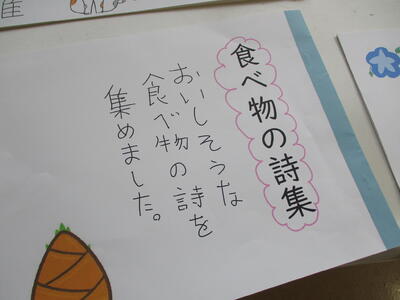 食べ物の詩集
おいしそうな
食べ物の詩を
集めました。